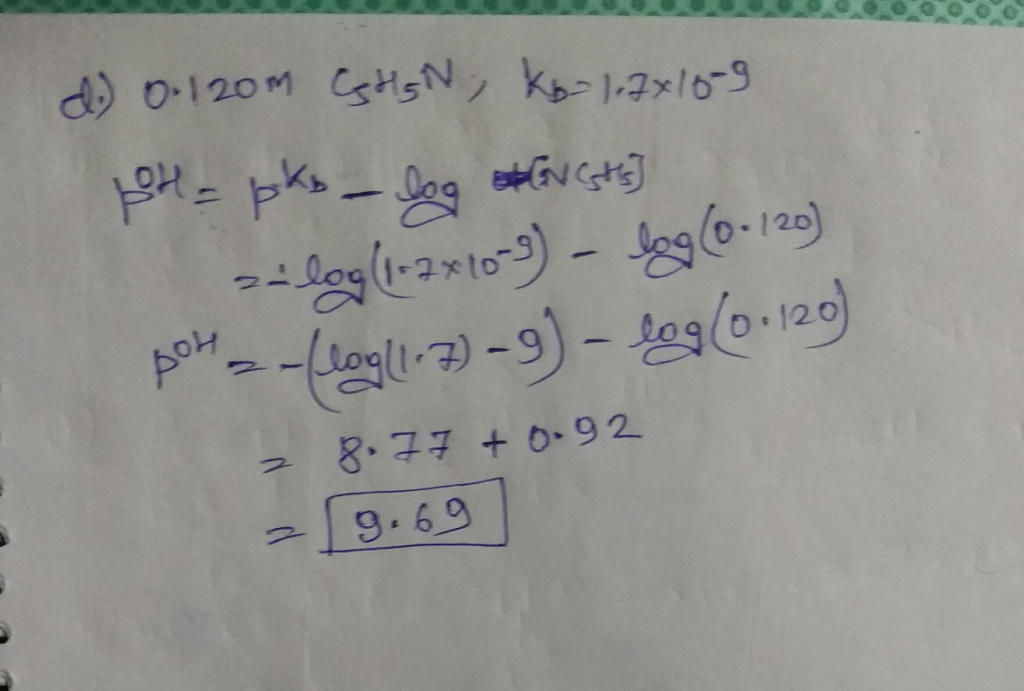 d.) 0.120m C5H5N; Kb=1.7x10-9
pOH = pKb - log [NC5H5]
= - log(1.7x10-9) - log(0.120)
pOH = -(log(1.7) - 9) - log(0.120)
= 8.77 + 0.92
= 9.69